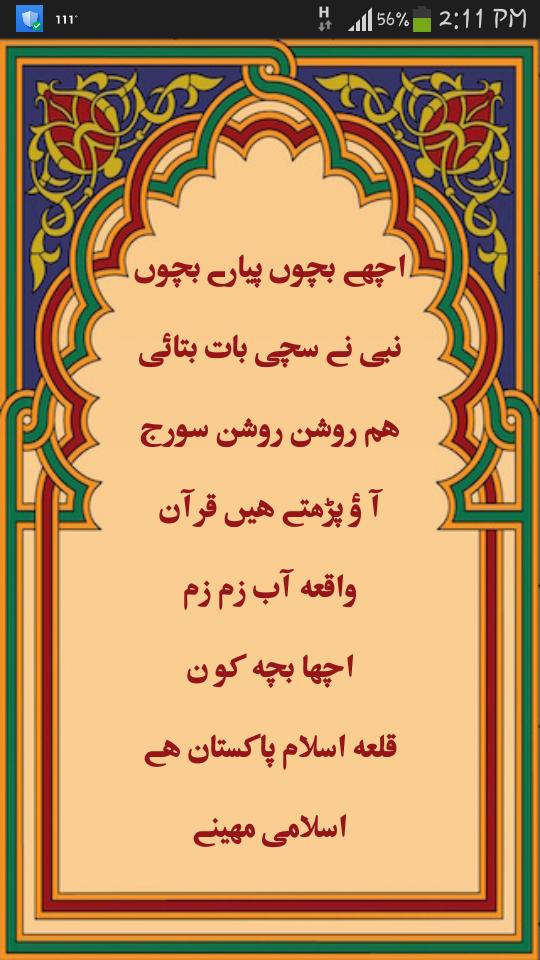 111°
H
56%
2:11 PM
اچھے بچوں پیارے بچوں
نبی نے سچی بات بتائی
ھم روشن روشن سورج
آ ؤ پڑھتے ھیں قرآن
واقعہ آب زم زم
اچھا بچہ کو ن
قلعہ اسلام پاکستان ھے
اسلامی مھینے